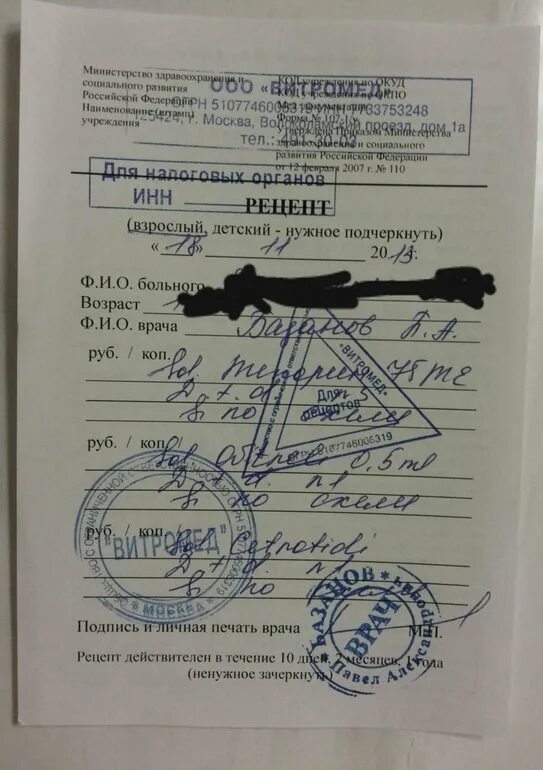 Министерство здравоохранения и
социального развития
Российской Федерации
Наименование (штамп)
учреждения
КОД учреждения по ОКУД
КОД учреждения по ОКПО
Мед. документация
Форма № 107-1/у
Утверждена Приказом Министерства
здравоохранения и социального
развития Российской Федерации
от 12 февраля 2007 г. № 110
ООО «ВИТРОМЕД»
ОГРН 5107746005319 7733753248
125424, г. Москва, Волоколамский проезд, дом 1а
тел.: 491
Для налоговых органов
ИНН
РЕЦЕПТ
(взрослый, детский - нужное подчеркнуть)
« 18 » 11 2013 г.
Ф.И.О. больного
Возраст
Ф.И.О. врача Базанов П.А.
руб. / коп.
Sol. 75 ME
D.t.d. n 5
S. по схеме
руб. / коп.
Sol. 0,5 ml
D.t.d. n 1
S. по схеме
руб. / коп.
Cetrotidi
D.t.d.
S. по
"ВИТРОМЕД"
Для
рецептов
ОГРН 5107746005319
"ВИТРОМЕД"
МОСКВА
БАЗАНОВ
Павел Александрович
ВРАЧ
Подпись и личная печать врача М.П.
Рецепт действителен в течение 10 дней, 2 месяцев, 1 года
(ненужное зачеркнуть)